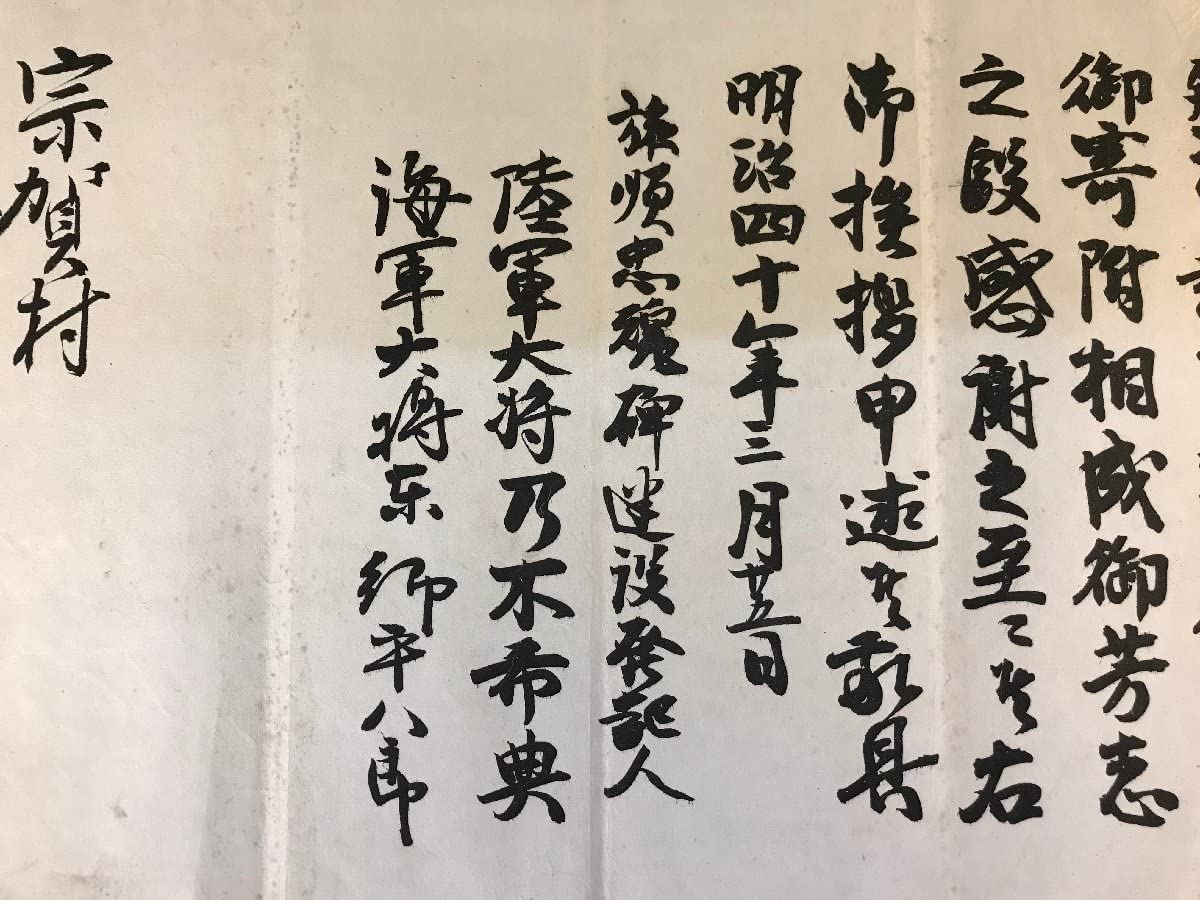 御寄附相成御芳志
之段感謝之至ニ候右
御挨拶申述候敬具
明治四十年三月廿五日
旅順忠魂碑建設発記人
陸軍大将乃木希典
海軍大将东郷平八郎
宗賀村